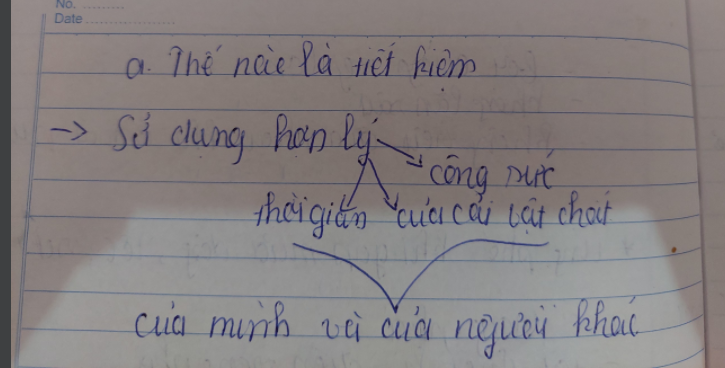 No. ..........
Date ......................
a. Thế nào là tiết kiệm
-> Sử dụng hợp lý
công sức
thời gian của cải vật chất
của mình và của người khác